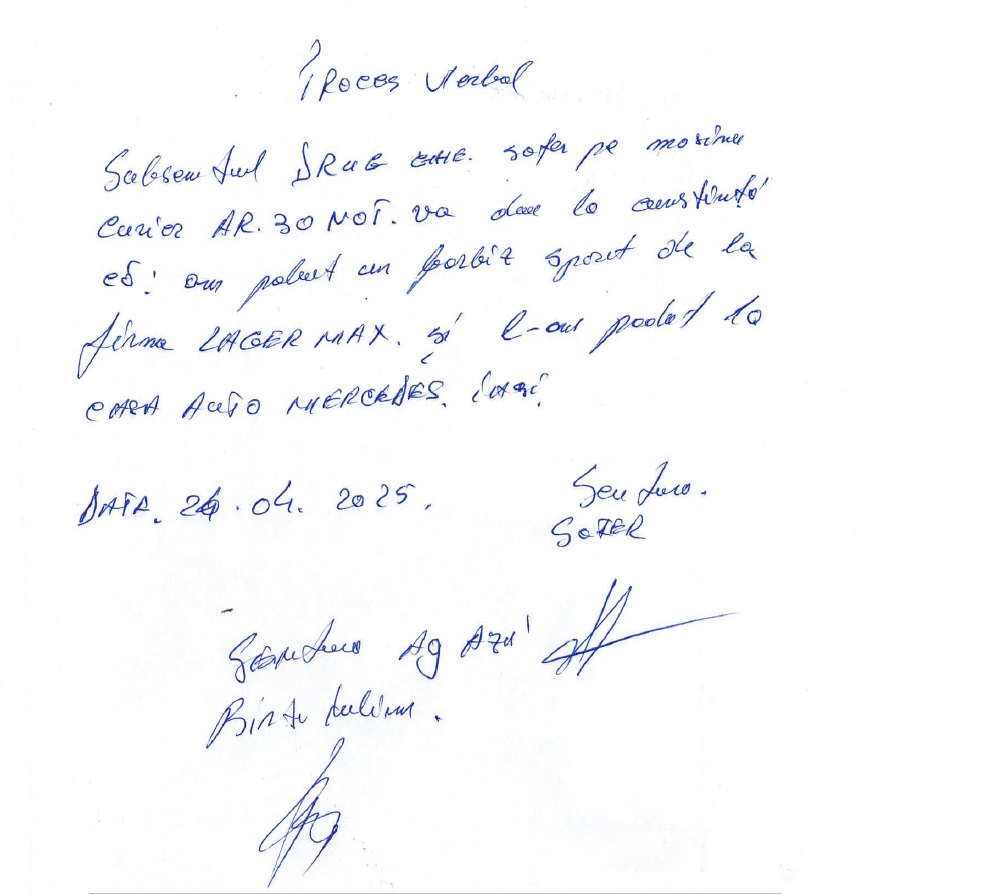 Proces Verbal
Subsemtul DRUG GHE. sofer pe masina
Curier AR. 30 NOT. va dau la cunstință
că: am palut un parbriz spart de la
firma LAGERMAX. și l-am predat la
CASA AUTO MERCEDES. iasi.
DATA. 24.04.2025.
Semtura.
SOFER
Semtura Ag Azu
Birtu Iulian.